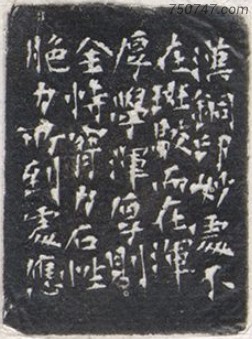 750747.com
漢銅印妙處不
在斑駁而在渾
厚學渾厚則
全恃力石性
脆力所到處應